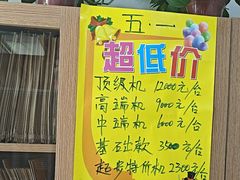 五·一
超低价
顶级机 12000元/台
高端机 9000元/台
中端机 6000元/台
基础款 3500元/台
超专特价机 2300元/台